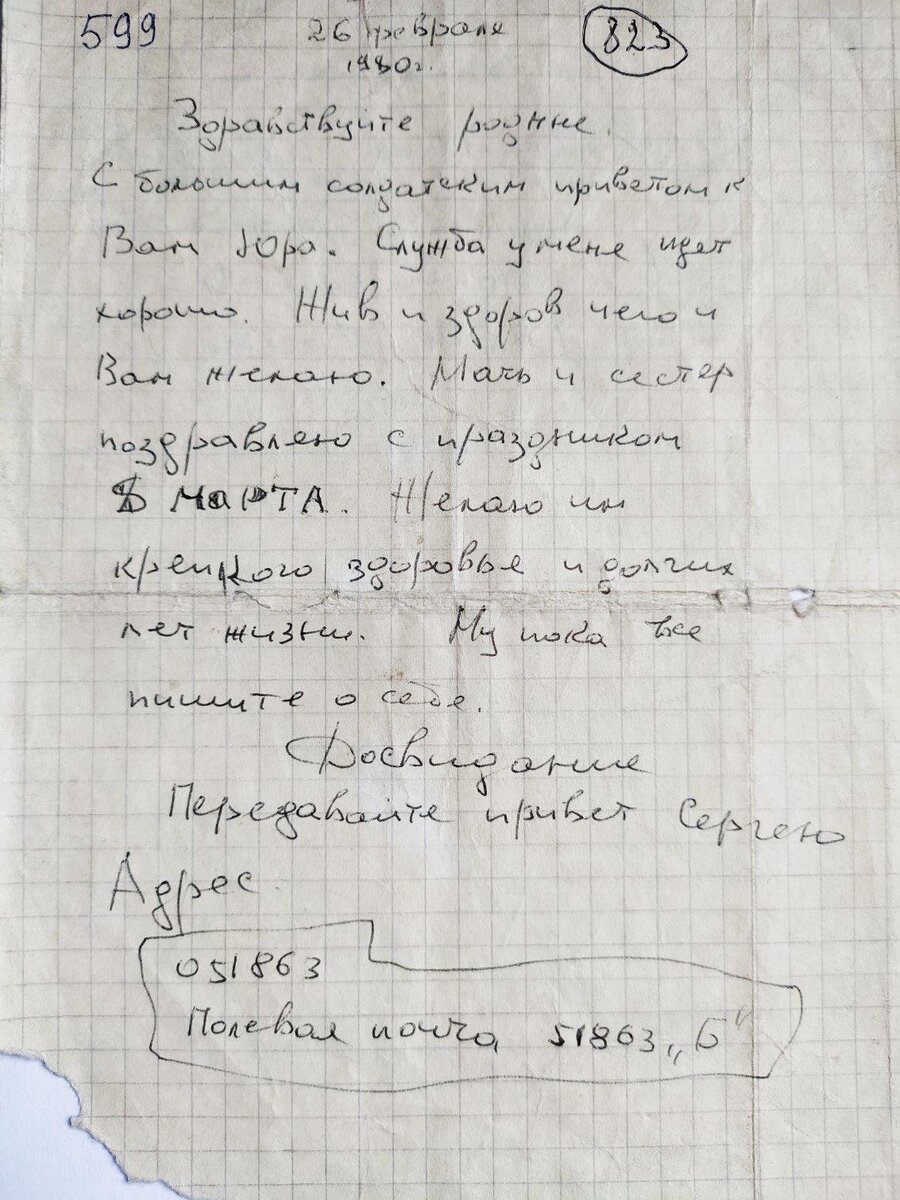 599
26 февраля
823
1980г.
Здравствуйте родные.
С большим солдатским приветом к
Вам Юра. Служба у меня идет
хорошо. Жив и здоров чего и
Вам желаю. Мать и сестер
поздравляю с праздником
8 МАРТА. Желаю им
крепкого здоровье и долгих
лет жизни. Ну пока все
пишите о себе.
Досвидание
Передавайте привет Сергею
Адрес.
051863
Полевая почта 51863 „Б"